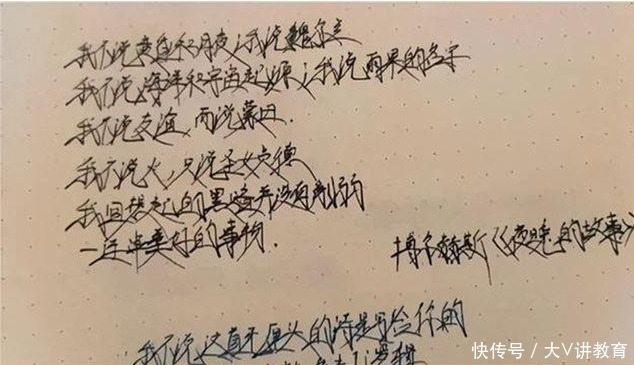 我不说责直和月夜；我说魏尔兰
我不说海洋和宇宙起源；我说雨果的名字
我不说友谊，而说蒙田.
我不说火，只说圣女贞德
我回想起的黑暗并没有削弱
一连串美好的事物.
博尔赫斯《夜晚的故事》
我不说这直不愣头的诗是写给你的
快传号 / 大V讲教育